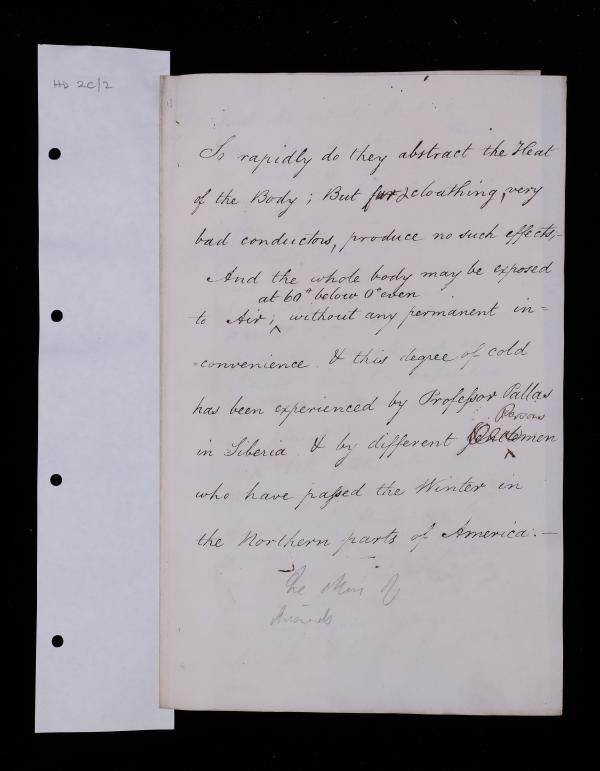 HD 2C/2
So rapidly do they abstract the Heat
of the Body; But fur & cloathing, very
bad conductors, produce no such effects;-
And the whole body may be exposed
at 60° below 0° even
to Air; without any permanent in=
=convenience & this degree of cold
has been experienced by Professor Pallas
Persons
in Siberia & by different Gentlemen
who have passed the Winter in
the Northern parts of America.-
The